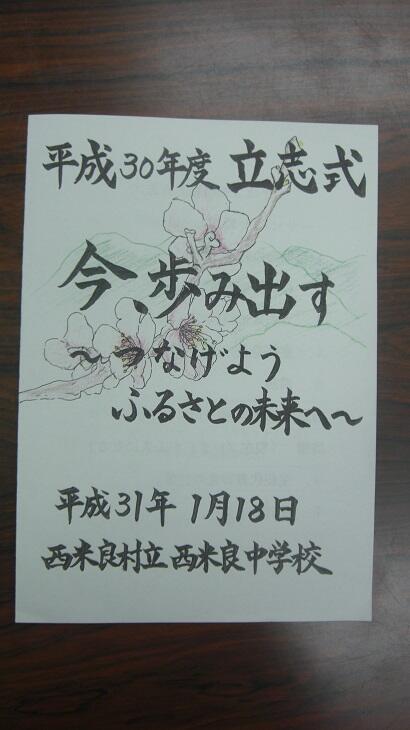 平成30年度 立志式
今、歩み出す
～つなげよう
ふるさとの未来へ～
平成31年 1月18日
西米良村立 西米良中学校